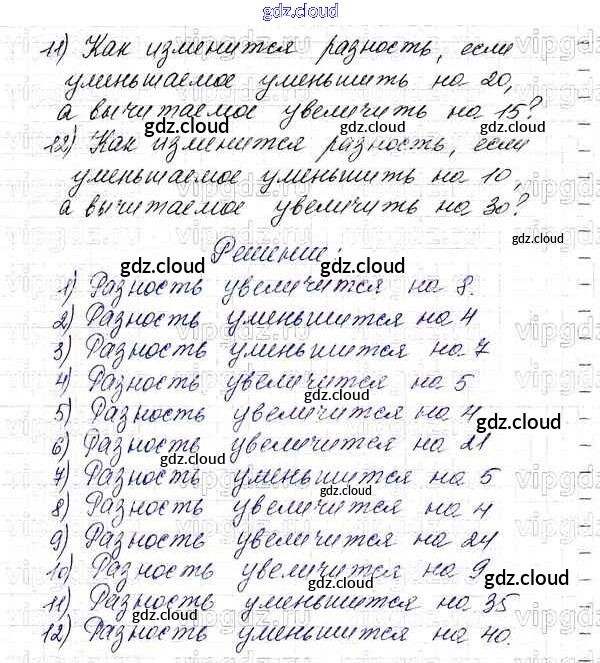 gdz.cloud
11) Как изменится разность, если
уменьшаемое уменьшить на 20,
а вычитаемое увеличить на 15?
gdz.cloud gdz.cloud
12) Как изменится разность, если
уменьшаемое уменьшить на 10,
gdz.cloud gdz.cloud
а вычитаемое увеличить на 30?
gdz.cloud
Решение:
gdz.cloud gdz.cloud
1) Разность увеличится на 8.
2) Разность уменьшится на 4
3) Разность уменьшится на 7
4) Разность увеличится на 5
gdz.cloud gdz.cloud
5) Разность увеличится на 4
gdz.cloud
6) Разность увеличится на 21
gdz.cloud
7) Разность уменьшится на 5
gdz.cloud
8) Разность увеличится на 4
9) Разность увеличится на 24
10) Разность увеличится на 9
gdz.cloud gdz.cloud
11) Разность уменьшится на 35
12) Разность уменьшится на 40.
gdz.cloud gdz.cloud